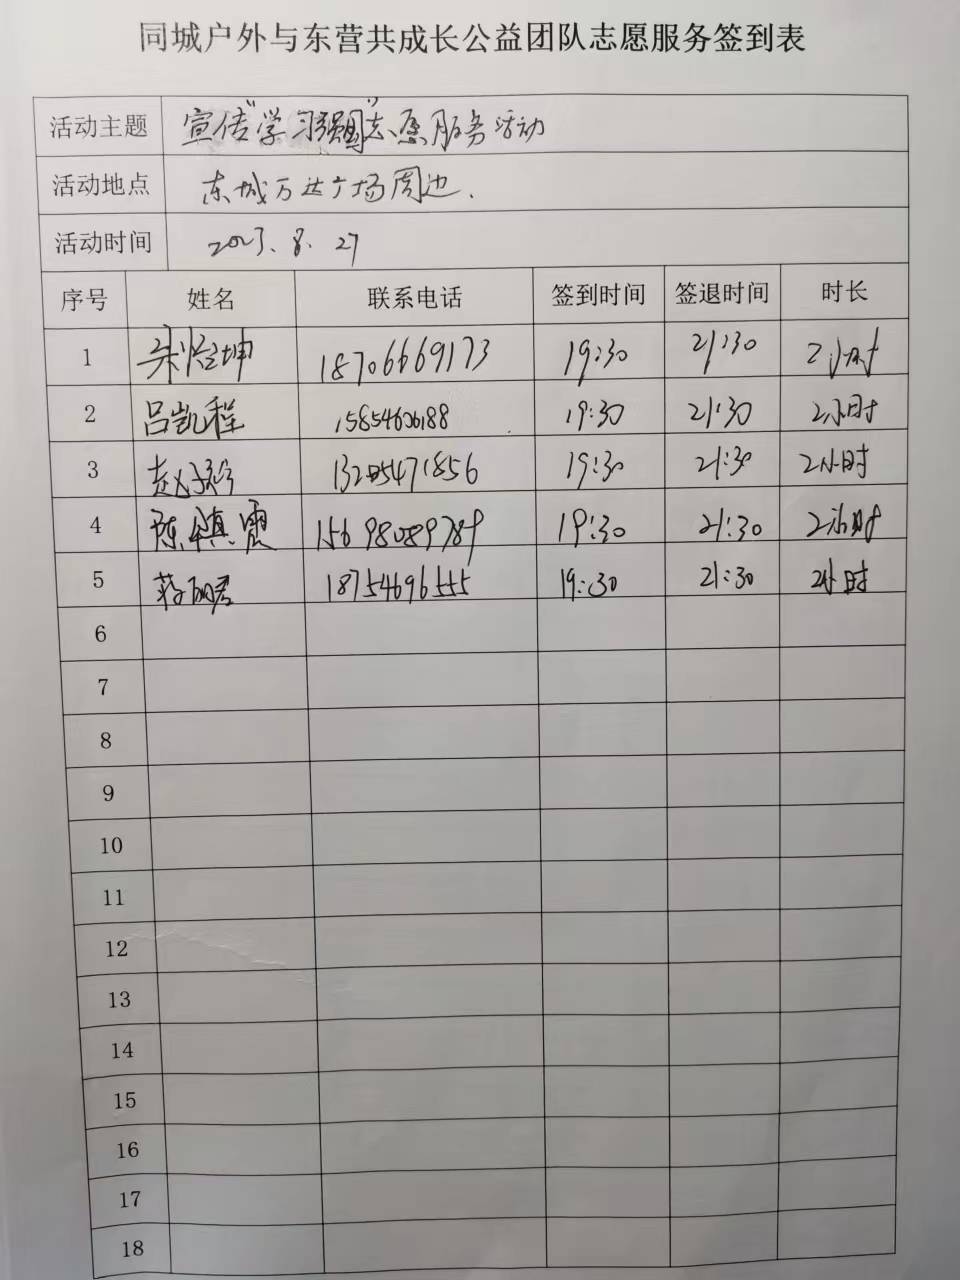 同城户外与东营共成长公益团队志愿服务签到表
活动主题 宣传"学习强国"志愿服务活动
活动地点 东城万达广场周边.
活动时间 2023.8.27
序号 姓名 联系电话 签到时间 签退时间 时长
1 18706669173 19:30 21:30 2小时
2 吕凯程 15854606188 19:30 21:30 2小时
3 19:30 21:30 2小时
4 陈镇震 15698089789 19:30 21:30 2小时
5 18754696555 19:30 21:30 2小时
6
7
8
9
10
11
12
13
14
15
16
17
18